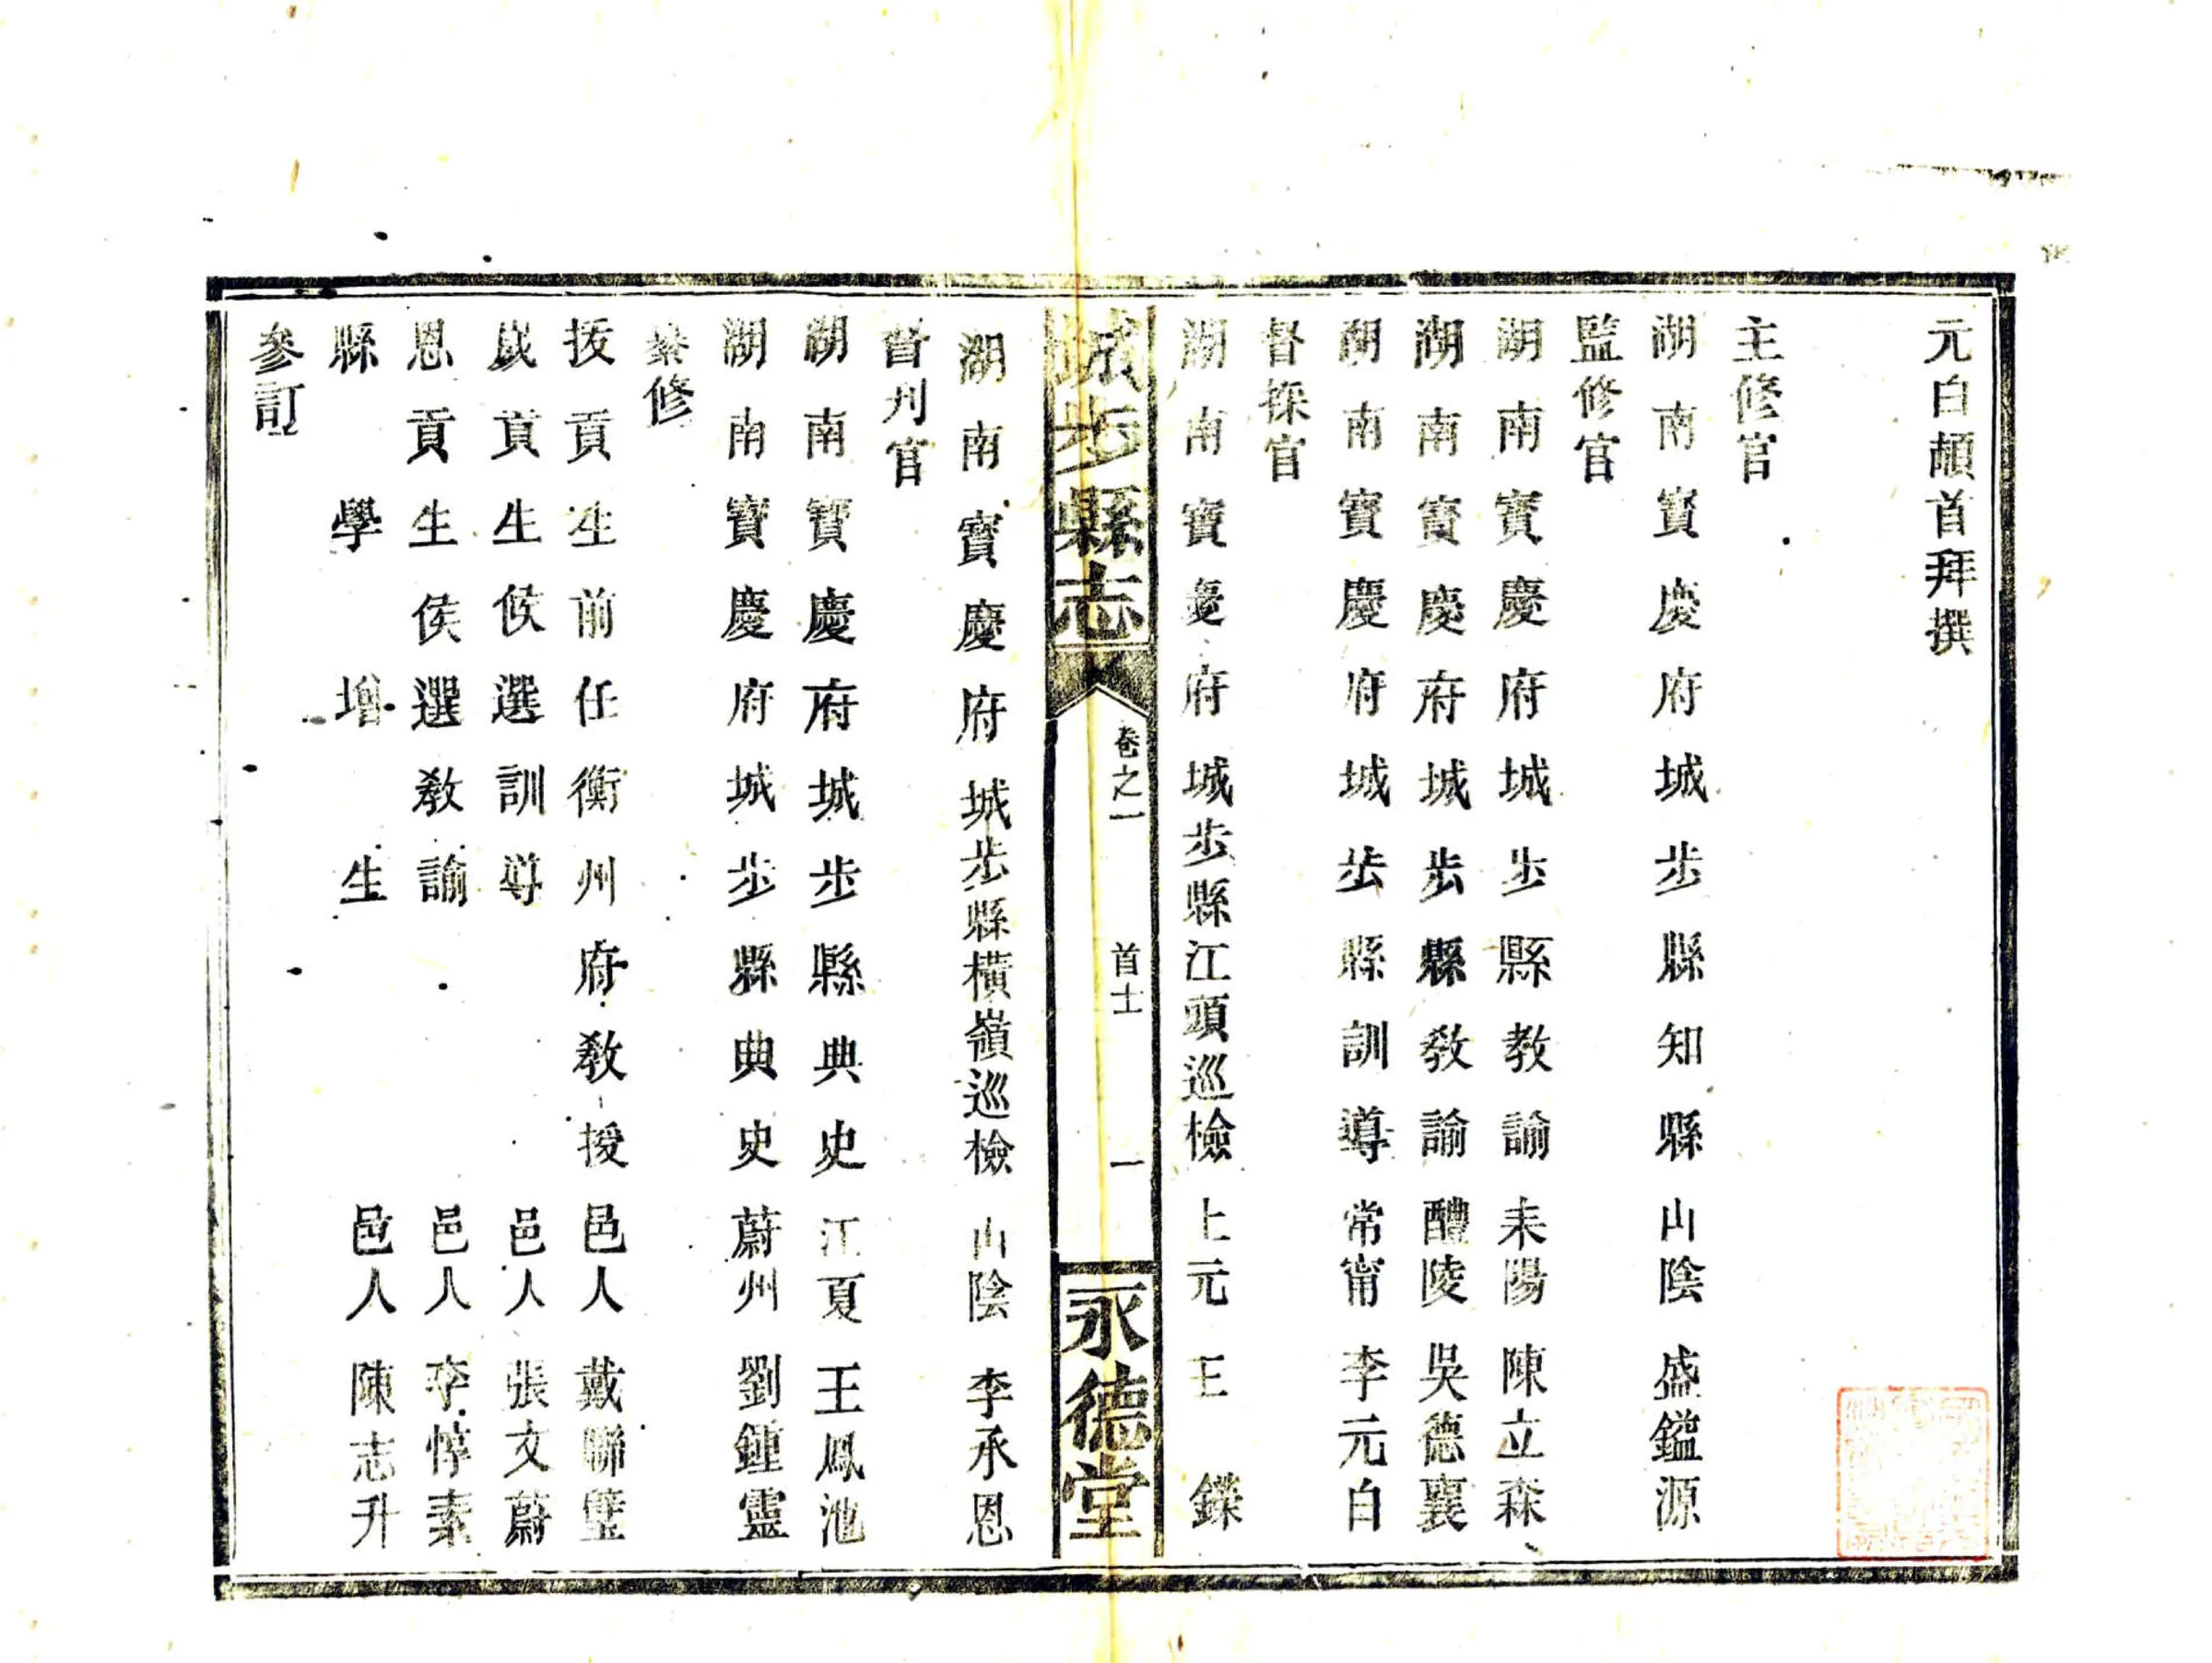 元白頔首拜撰
主修官
湖南寶慶府城步縣知縣 山陰 盛鎰源
監修官
湖南寶慶府城步縣教諭 耒陽 陳立森
湖南寶慶府城步縣教諭 醴陵 吳德襄
湖南寶慶府城步縣訓導 常甯 李元白
督採官
湖南寶慶府城步縣江頭巡檢 上元 王鑅
城步縣志 卷之一 首士 一 永德堂
湖南寶慶府城步縣橫嶺巡檢 山陰 李承恩
督刋官
湖南寶慶府城步縣典史 江夏 王鳳池
湖南寶慶府城步縣典史 蔚州 劉鍾靈
纂修
拔貢生前任衡州府教授 邑人 戴聯璧
歲貢生候選訓導 邑人 張文蔚
恩貢生侯選教諭 邑人 李惇素
縣學增生 邑人 陳志升
參訂